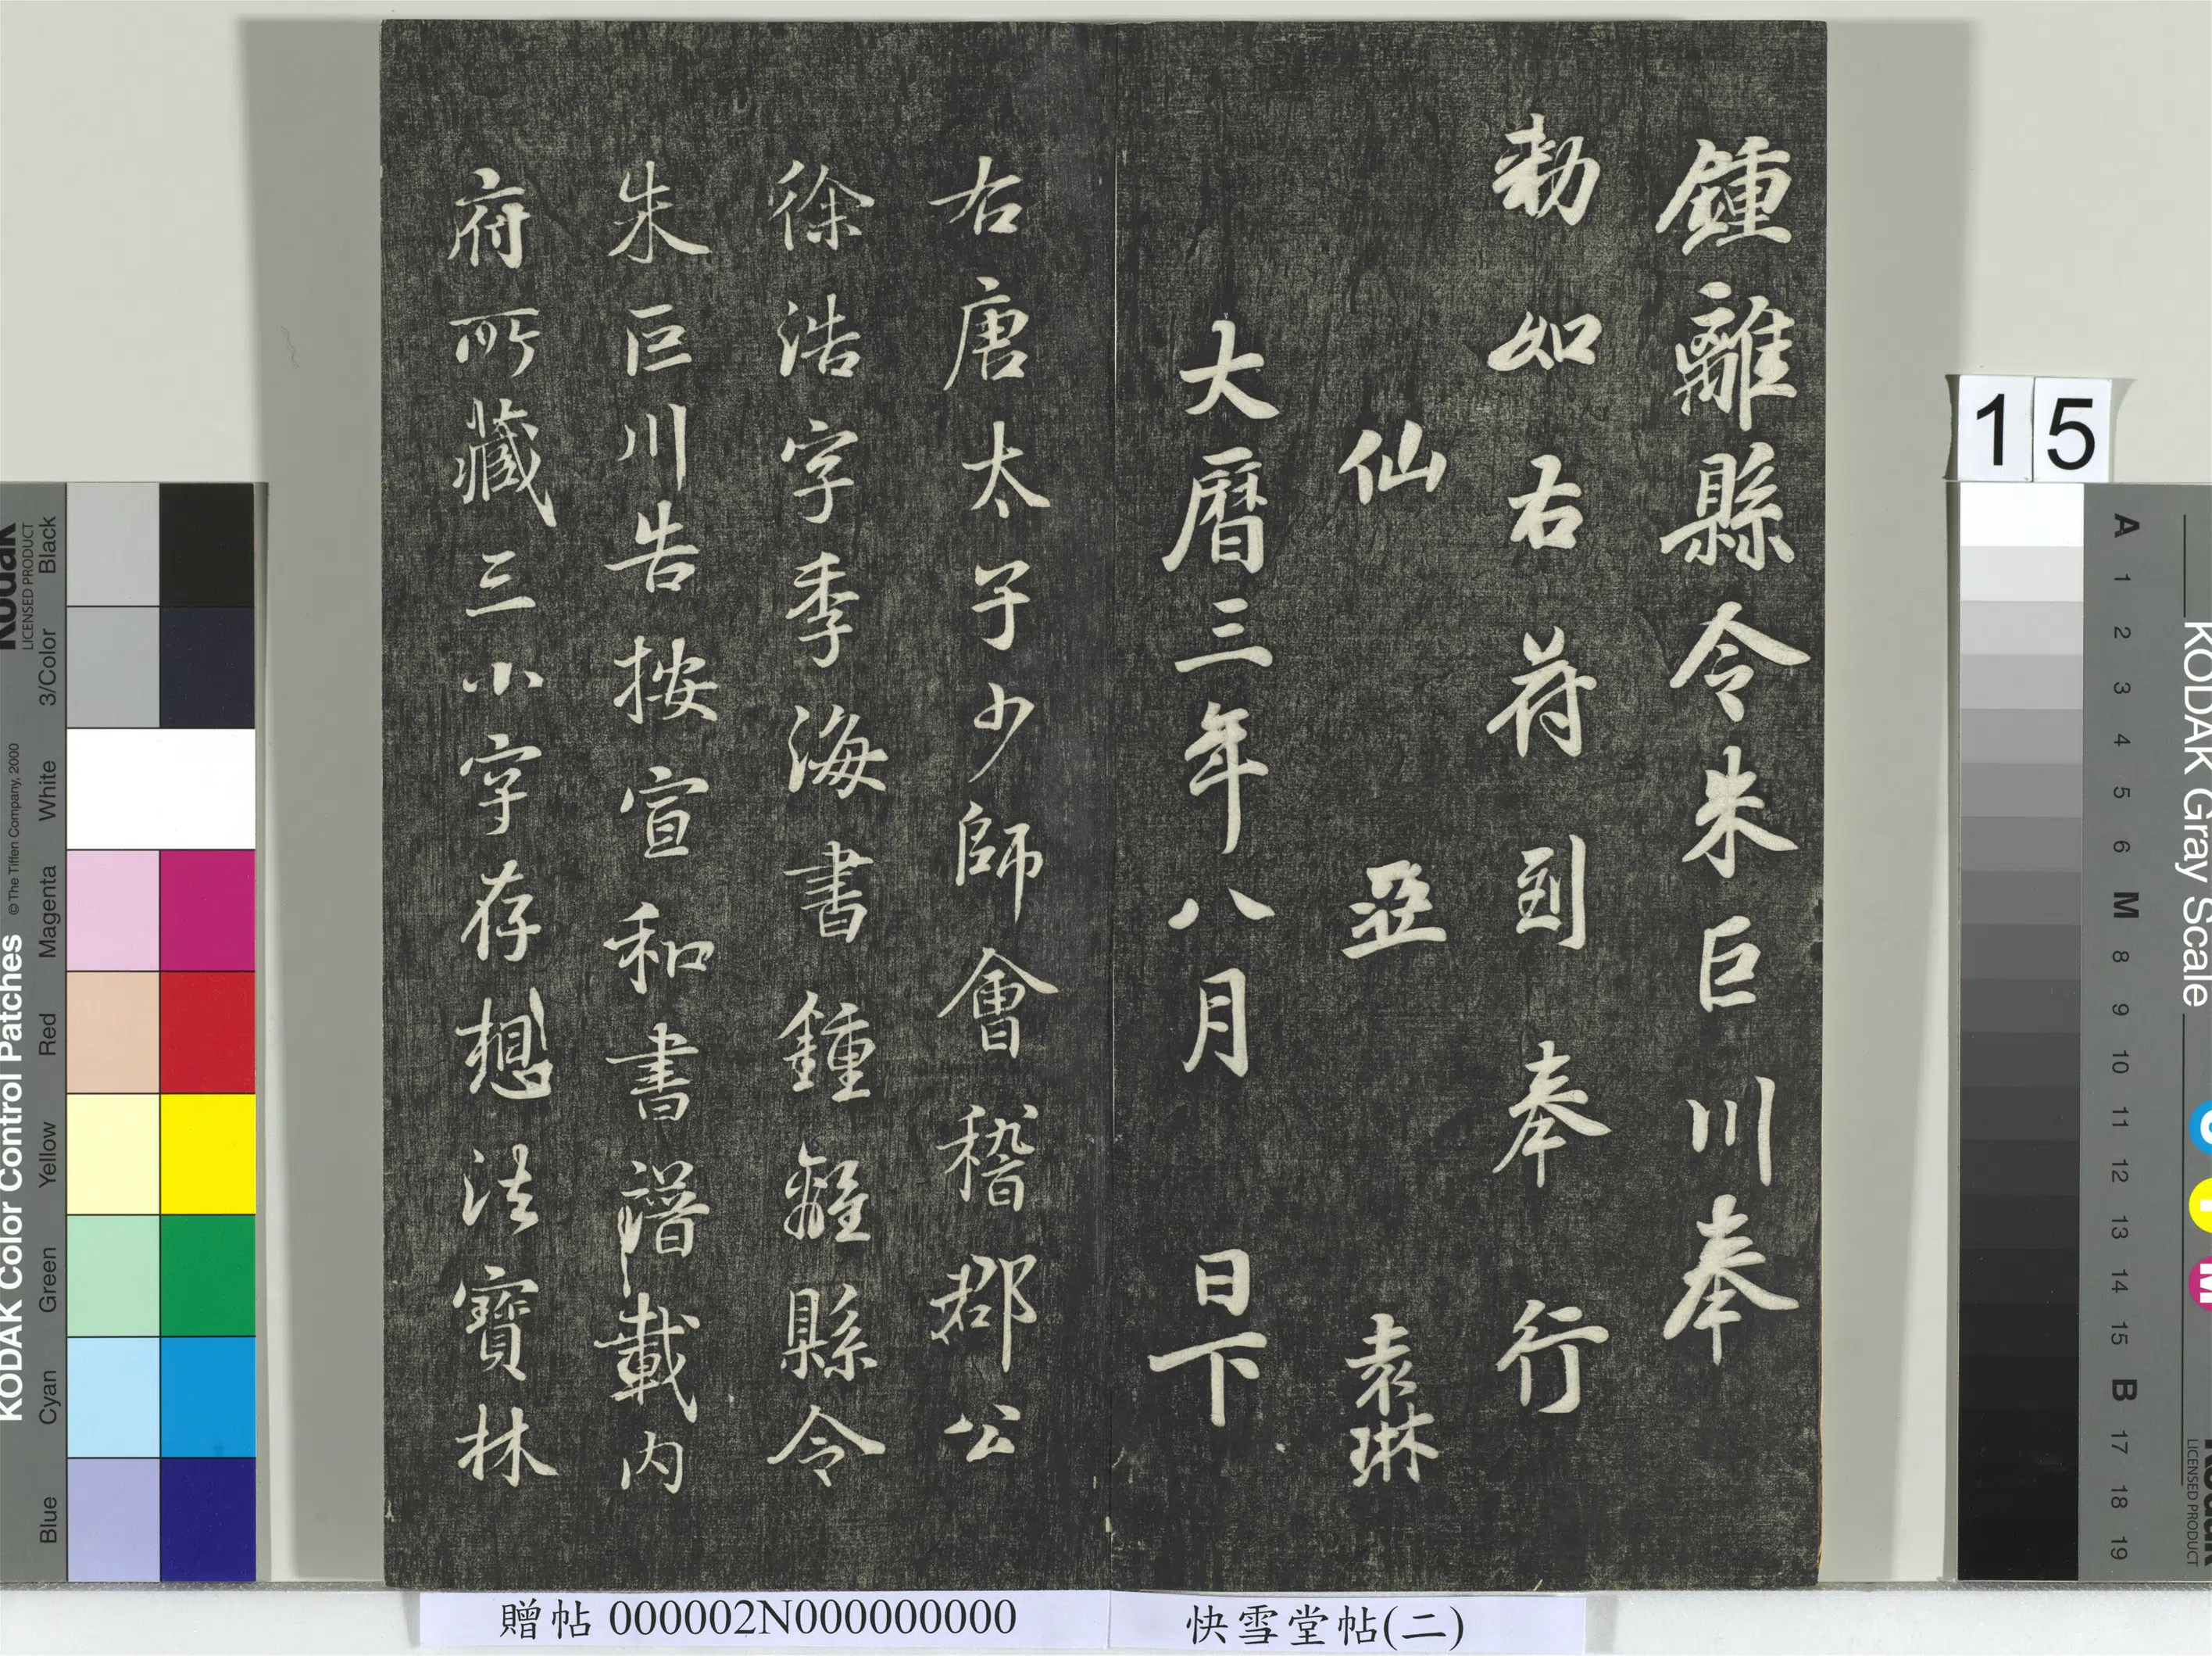 鍾離縣令朱巨川奉
勅如右苻到奉行
仙 袁琳
大曆三年八月 日下
右唐太子少師會稽郡公
徐浩字季海書鍾離縣令
朱巨川告按宣和書譜載内
府所藏三小字存想法寶林
15
贈帖 000002N000000000
快雪堂帖(二)
KODAK Color Control Patches © The Tiffen Company, 2000
Kodak
LICENSED PRODUCT
Blue Cyan Green Yellow Red Magenta White 3/Color Black
KODAK Gray Scale
A 1 2 3 4 5 6 M 8 9 10 11 12 13 14 15 B 17 18 19
C Y M
Kodak
LICENSED PRODUCT